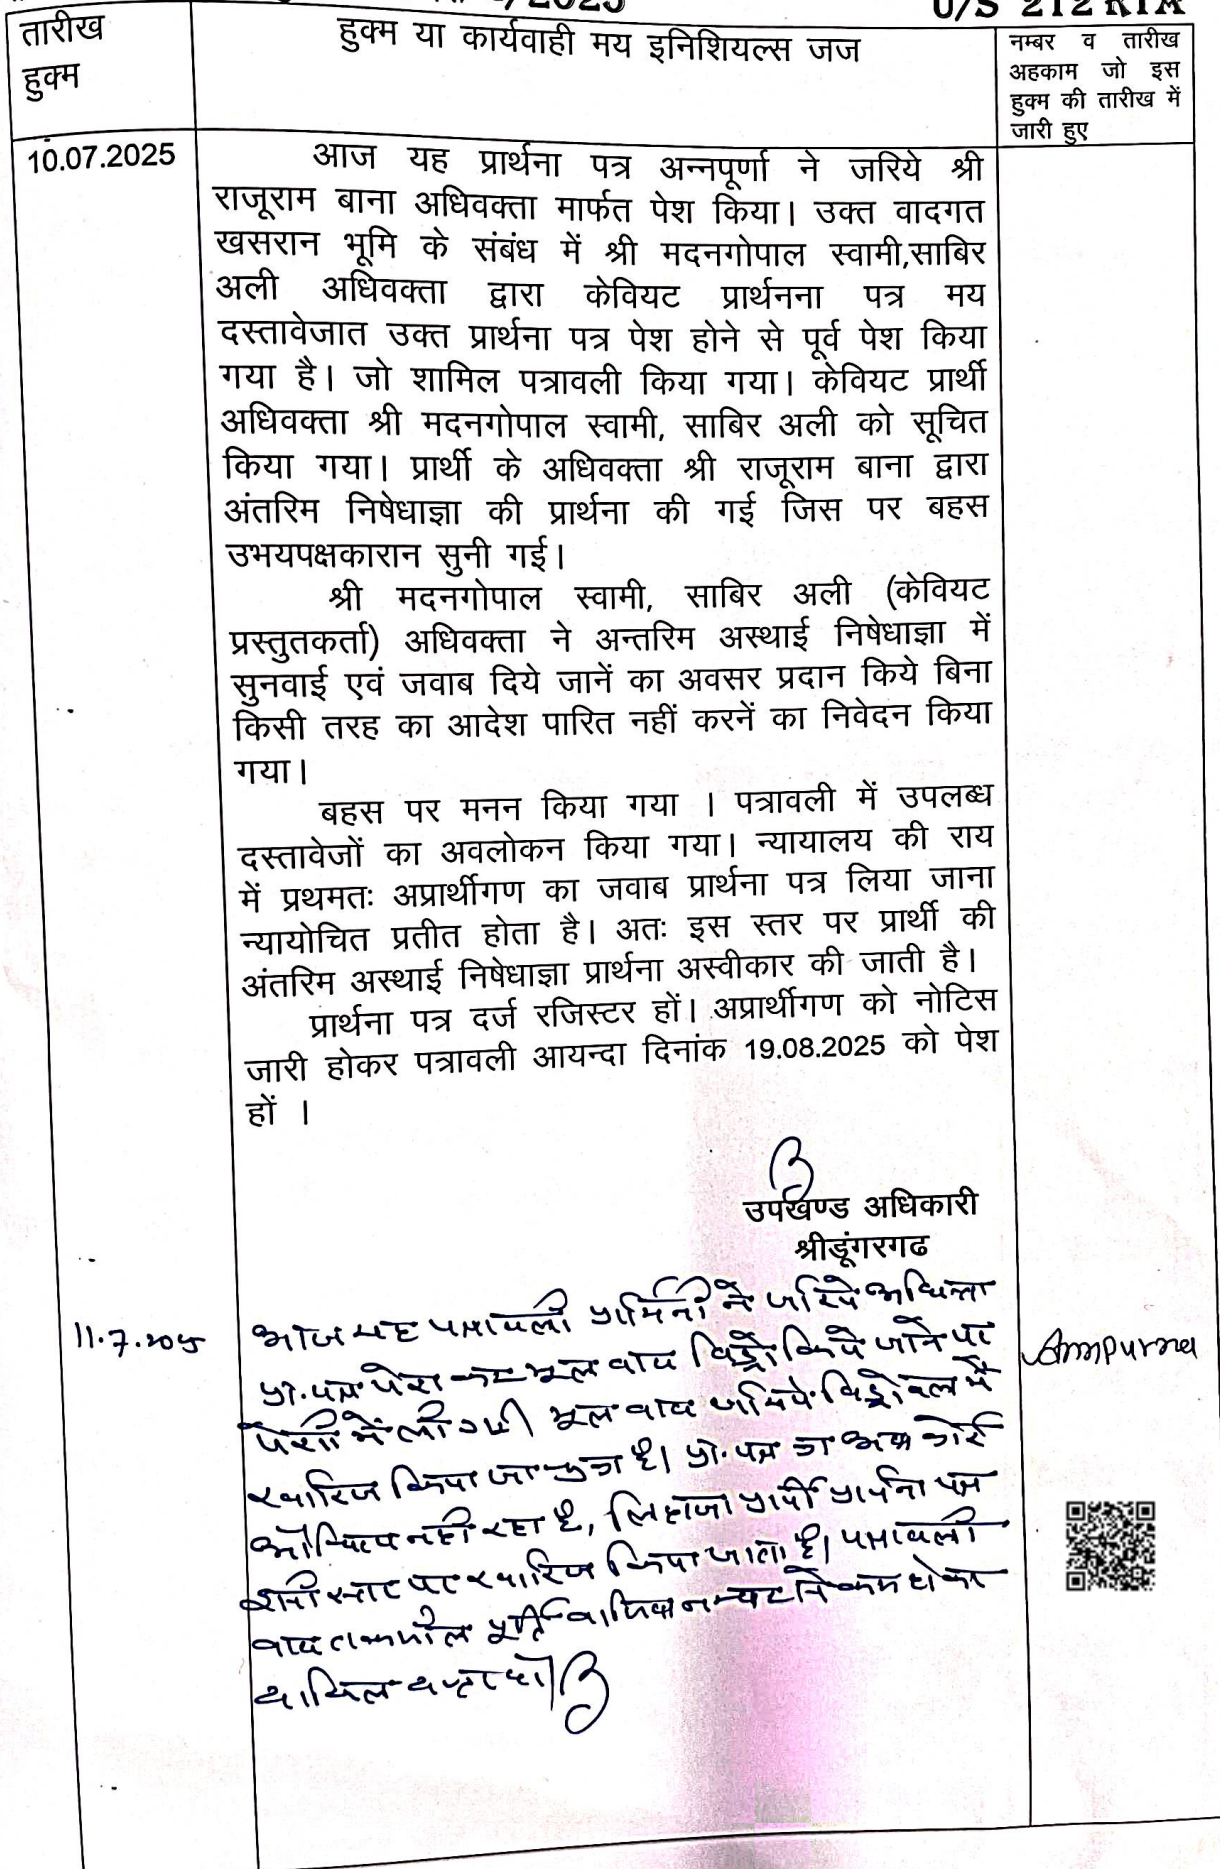 /2025
U/S 212 RTA
तारीख
हुक्म
हुक्म या कार्यवाही मय इनिशियल्स जज
नम्बर व तारीख
अहकाम जो इस
हुक्म की तारीख में
जारी हुए
10.07.2025
आज यह प्रार्थना पत्र अन्नपूर्णा ने जरिये श्री
राजूराम बाना अधिवक्ता मार्फत पेश किया। उक्त वादगत
खसरान भूमि के संबंध में श्री मदनगोपाल स्वामी,साबिर
अली अधिवक्ता द्वारा केवियट प्रार्थनना पत्र मय
दस्तावेजात उक्त प्रार्थना पत्र पेश होने से पूर्व पेश किया
गया है। जो शामिल पत्रावली किया गया। केवियट प्रार्थी
अधिवक्ता श्री मदनगोपाल स्वामी, साबिर अली को सूचित
किया गया। प्रार्थी के अधिवक्ता श्री राजूराम बाना द्वारा
अंतरिम निषेधाज्ञा की प्रार्थना की गई जिस पर बहस
उभयपक्षकारान सुनी गई।
श्री मदनगोपाल स्वामी, साबिर अली (केवियट
प्रस्तुतकर्ता) अधिवक्ता ने अन्तरिम अस्थाई निषेधाज्ञा में
सुनवाई एवं जवाब दिये जानें का अवसर प्रदान किये बिना
किसी तरह का आदेश पारित नहीं करनें का निवेदन किया
गया।
बहस पर मनन किया गया । पत्रावली में उपलब्ध
दस्तावेजों का अवलोकन किया गया। न्यायालय की राय
में प्रथमतः अप्रार्थीगण का जवाब प्रार्थना पत्र लिया जाना
न्यायोचित प्रतीत होता है। अतः इस स्तर पर प्रार्थी की
अंतरिम अस्थाई निषेधाज्ञा प्रार्थना अस्वीकार की जाती है।
प्रार्थना पत्र दर्ज रजिस्टर हों। अप्रार्थीगण को नोटिस
जारी होकर पत्रावली आयन्दा दिनांक 19.08.2025 को पेश
हों ।
उपखण्ड अधिकारी
श्रीडूंगरगढ
11.7.2025
आज यह पत्रावली प्रार्थिनी ने जरिये अधिवक्ता
प्रा. पत्र पेश कर मूल वाद विड्रो किये जाने पर
पेशी में ली गयी मूल वाद जरिये विड्रोवल में
खारिज किया जा चुका है। प्रा. पत्र का अब कोई
औचित्य नही रहा है, लिहाजा प्रार्थी प्रार्थना पत्र
इसी स्तर पर खारिज किया जाता है। पत्रावली
वाद तकमील पूर्ति नम्बर से कम होकर
दाखिल दफ्तर हो।
Annpurna